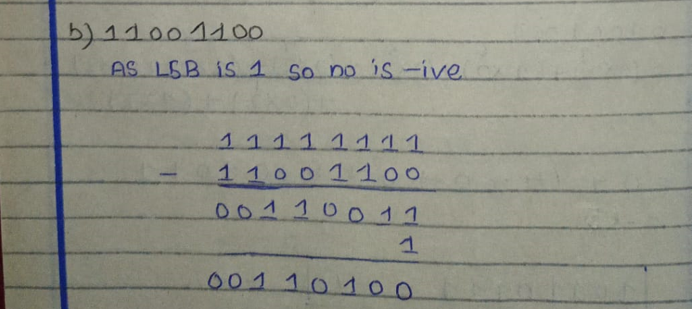 b) 11001100
AS LSB is 1 so no is -ive
11111111
- 11001100
00110011
1
00110100